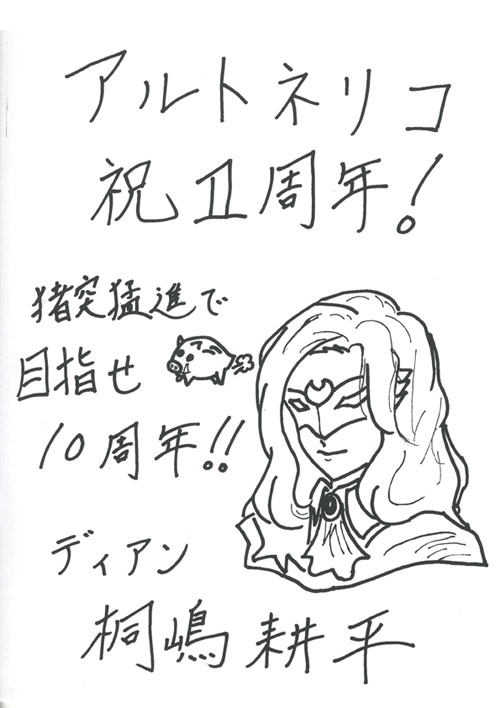 アルトネリコ
祝Ⅱ周年!
猪突猛進で
目指せ
10周年!!
ディアン
桐嶋耕平